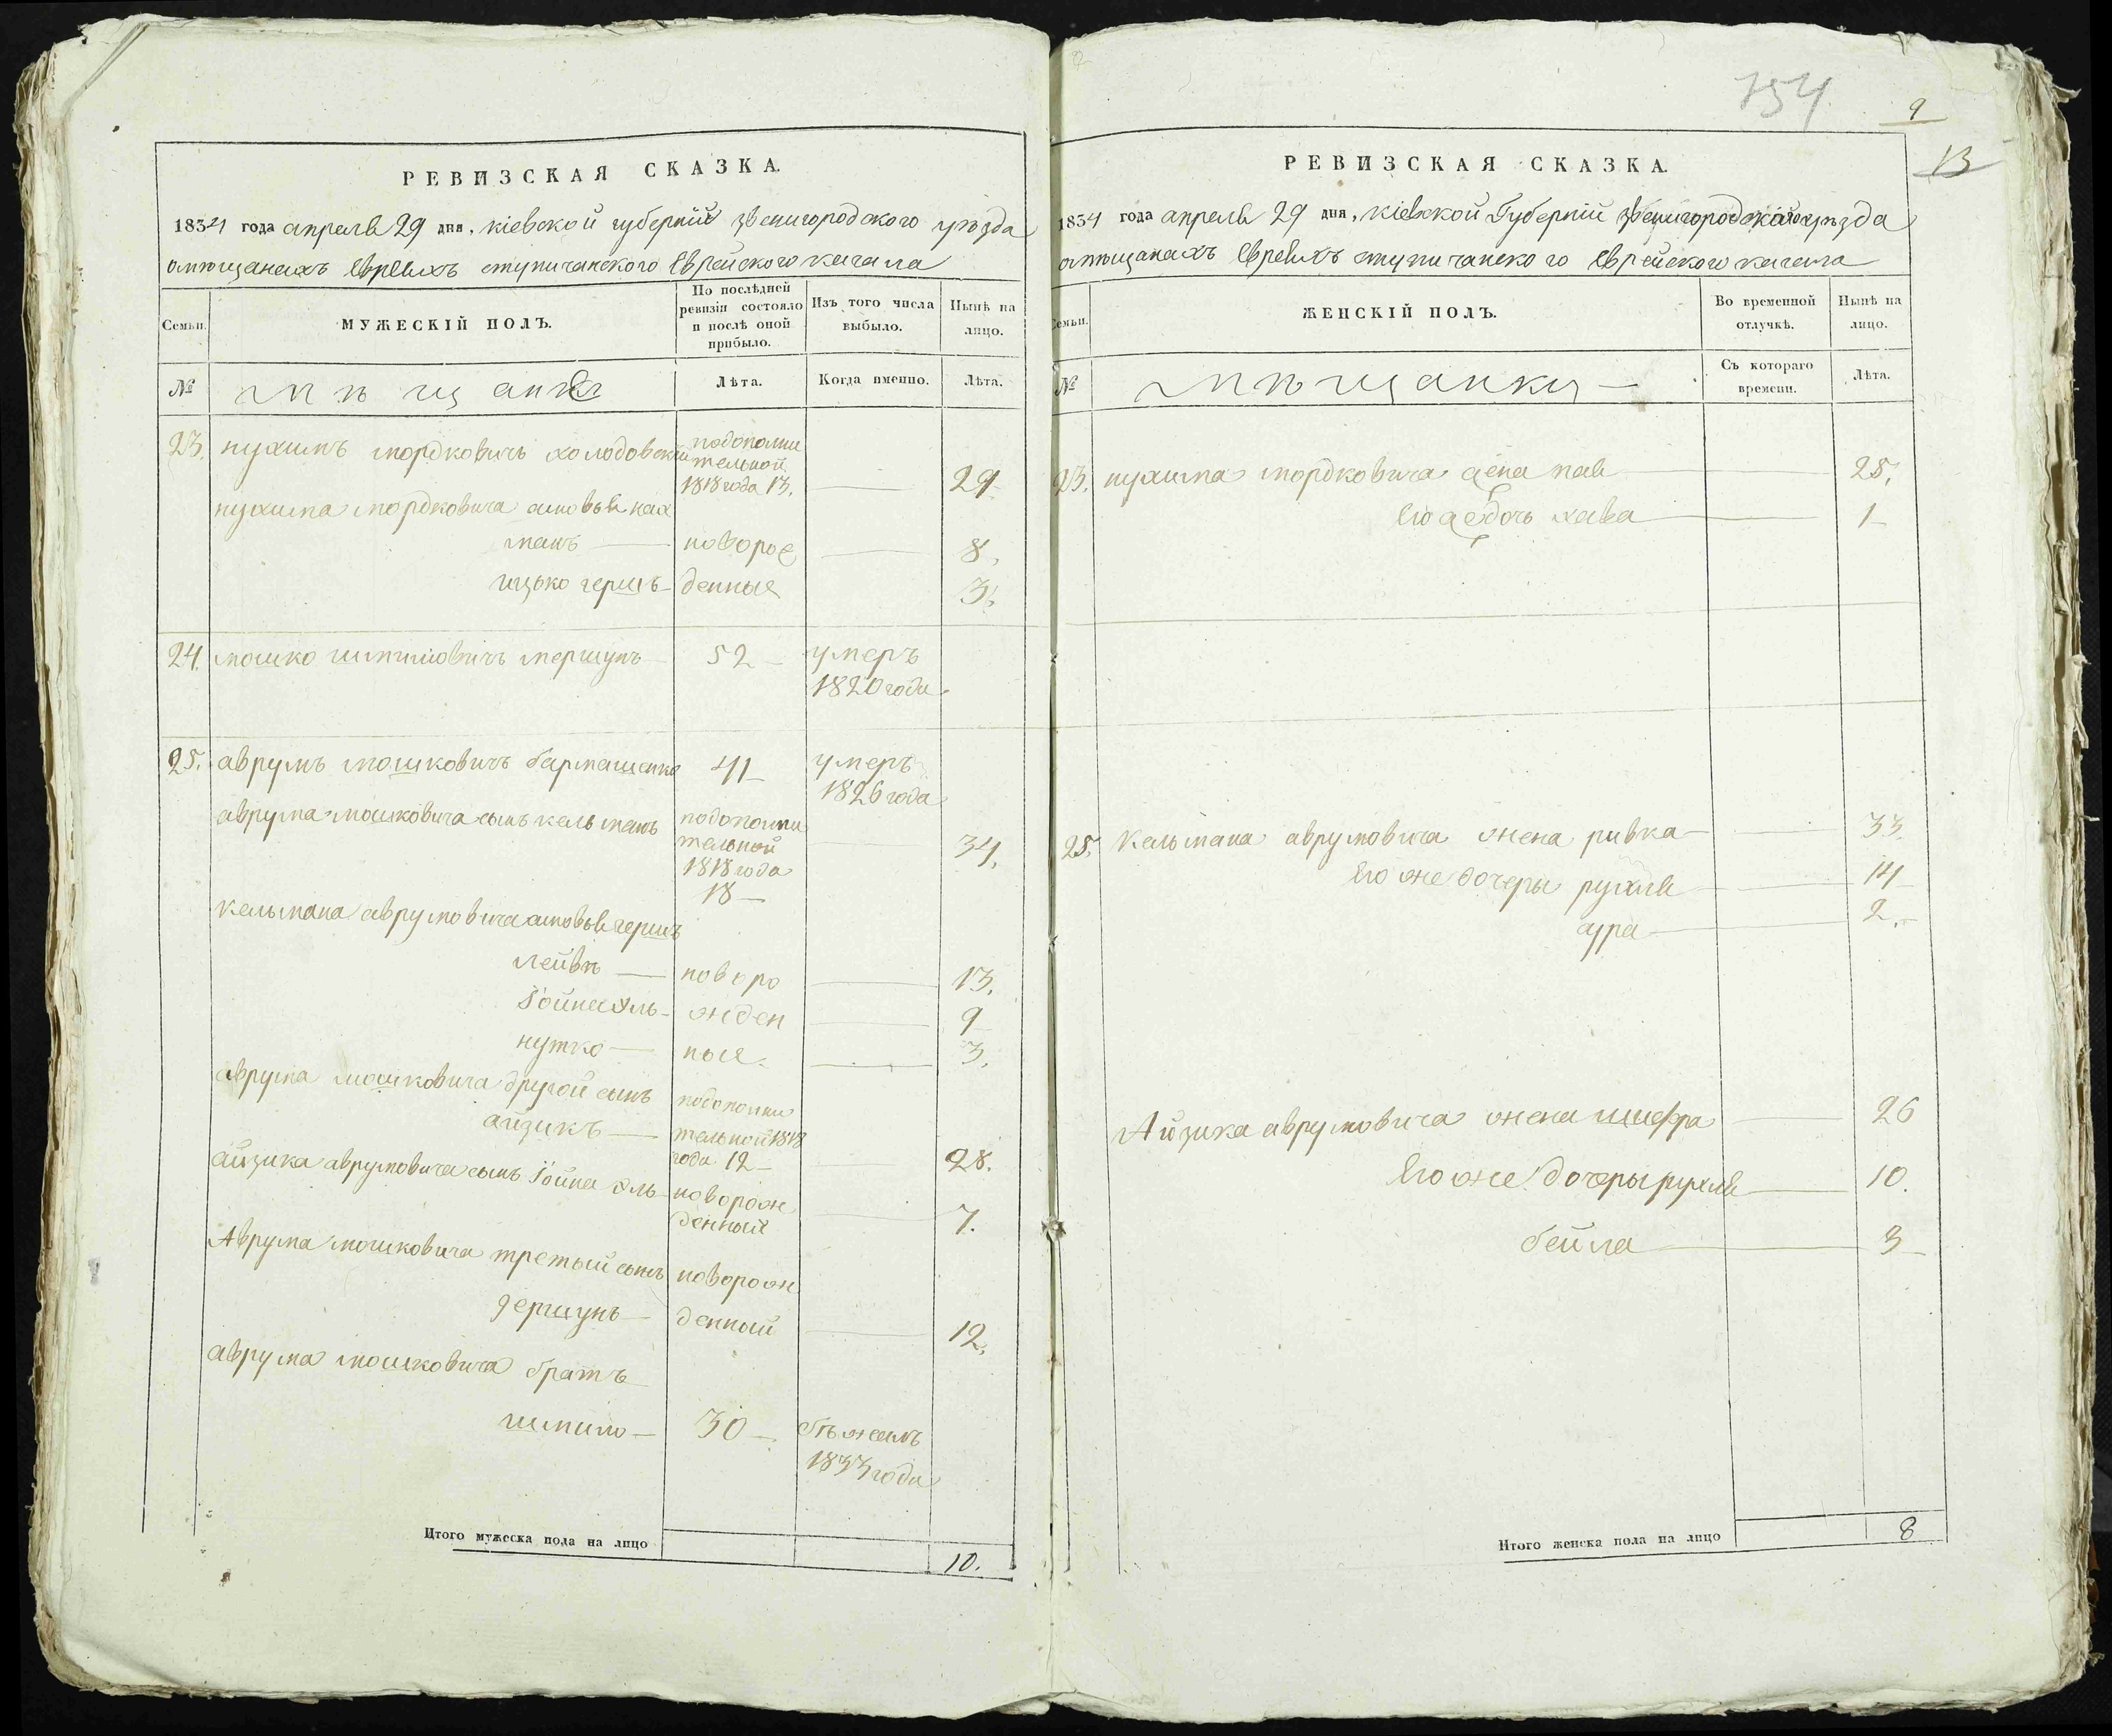 РЕВИЗСКАЯ СКАЗКА.
1834 года апреля 29 дня, кіевской губерніи звенигородского уѣзда
омѣщанахъ Евреяхъ ступичанского Еврейского кагала
Семьи.
МУЖЕСКІЙ ПОЛЪ.
По послѣдней ревизіи состояло и послѣ оной прибыло.
Изъ того числа выбыло.
Нынѣ на лицо.
№
мѣщане
Лѣта.
Когда именно.
Лѣта.
23. нухимъ мордковичъ холодовский подополни
тельной
1818 года 13. 29
нухима мордковича сыновья нах
манъ — ново рож 8.
ицько гершъ — денные 3.
24. мошко шмиловичъ мершунъ 52 — умеръ
1820 года
25. аврумъ мошковичъ бармашенко 41 умеръ
1826 года
аврума мошковича сынъ кельманъ подополни
тельной 34.
1818 года
18 —
кельмана аврумовича сыновья гершъ
лейбъ — новоро 13.
Іойна Эль — жден 9
нутко — ные 3.
аврума мошковича другой сынъ подополни
айзикъ — тельной 1818
года 12 — 28.
айзика аврумовича сынъ Іойна Эль новорож
денный 7.
Аврума мошковича третый сынъ новорож
гершунъ — денный 12.
аврума мошковича братъ
шмило — 30 — бѣжалъ
1833 года
Итого мужеска пола на лицо 10.
754
9
13
РЕВИЗСКАЯ СКАЗКА.
1834 года апреля 29 дня, кіевской Губерніи звенигородского уѣзда
омѣщанахъ Евреяхъ ступичанского Еврейского кагала
Семьи.
ЖЕНСКІЙ ПОЛЪ.
Во временной отлучкѣ.
Нынѣ на лицо.
№
мѣщанки —
Съ котораго времени.
Лѣта.
23. нухима мордковича жена 25.
Его же дочь хава 1
25. Кельмана аврумовича жена ривка 33
Его же дочеры рухля 14
сура 2.
Айзика аврумовича жена шифра 26
Его же дочеры рухля 10.
бейла 3
Итого женска пола на лицо 8